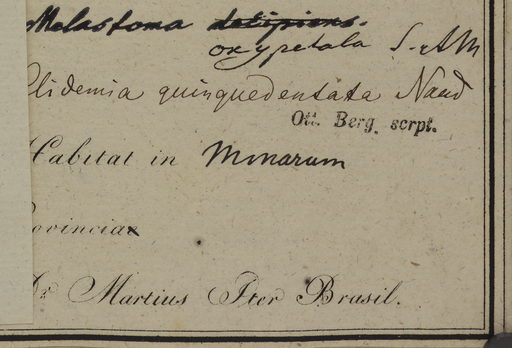 Melastoma decipiens.
oxypetala S. et M
lidemia quinquedentata Naud
Ott. Berg. scrpt.
Habitat in Minarum
ovinciae
Dr Martius Iter Brasil.